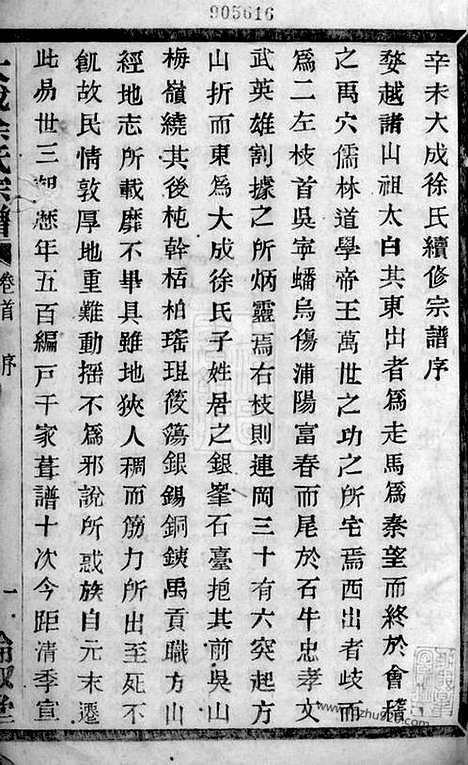 905616
辛未大成徐氏續修宗譜序
婺越諸山祖太白其東出者爲走馬爲秦望而終於會稽
之禹穴儒林道學帝王萬世之功之所宅焉西出者歧而
爲二左枝首吳寧蟠烏傷浦陽富春而尾於石牛忠孝文
武英雄割據之所炳靈焉右枝則連岡三十有六突起方
山折而東爲大成徐氏子姓居之銀峯石臺抱其前吳山
梅嶺繞其後杶幹栝柏瑤琨篠簜銀錫銅鐵禹貢職方山
經地志所載靡不畢具雖地狹人稠而筋力所出至死不
飢故民情敦厚地重難動搖不爲邪說所惑族自元末遷
此易世三朝歷年五百編戸千家葺譜十次今距清季宣
大成徐氏宗譜 卷首 序 一 倫敘堂